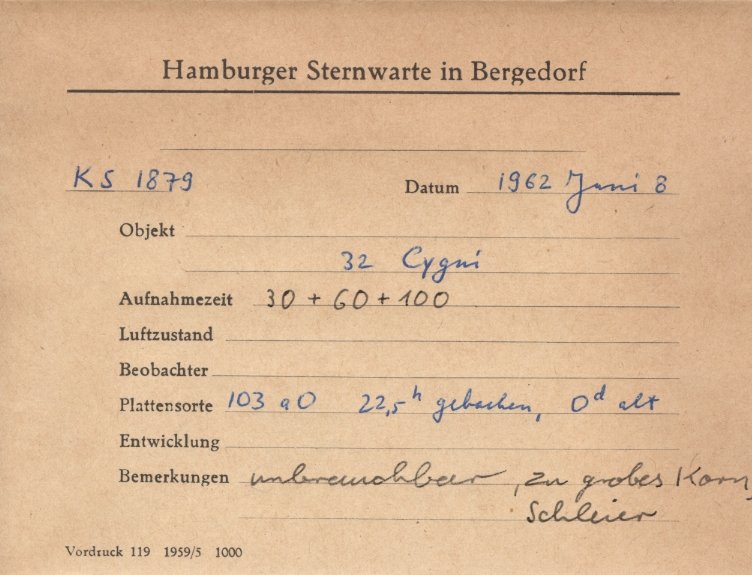 Hamburger Sternwarte in Bergedorf
KS 1879 Datum 1962 Juni 8
Objekt
32 Cygni
Aufnahmezeit 30 + 60 + 100
Luftzustand
Beobachter
Plattensorte 103 aO 22,5ʰ gebacken, 0ᵈ alt
Entwicklung
Bemerkungen unbrauchbar, zu grobes Korn,
Schleier
Vordruck 119 1959/5 1000